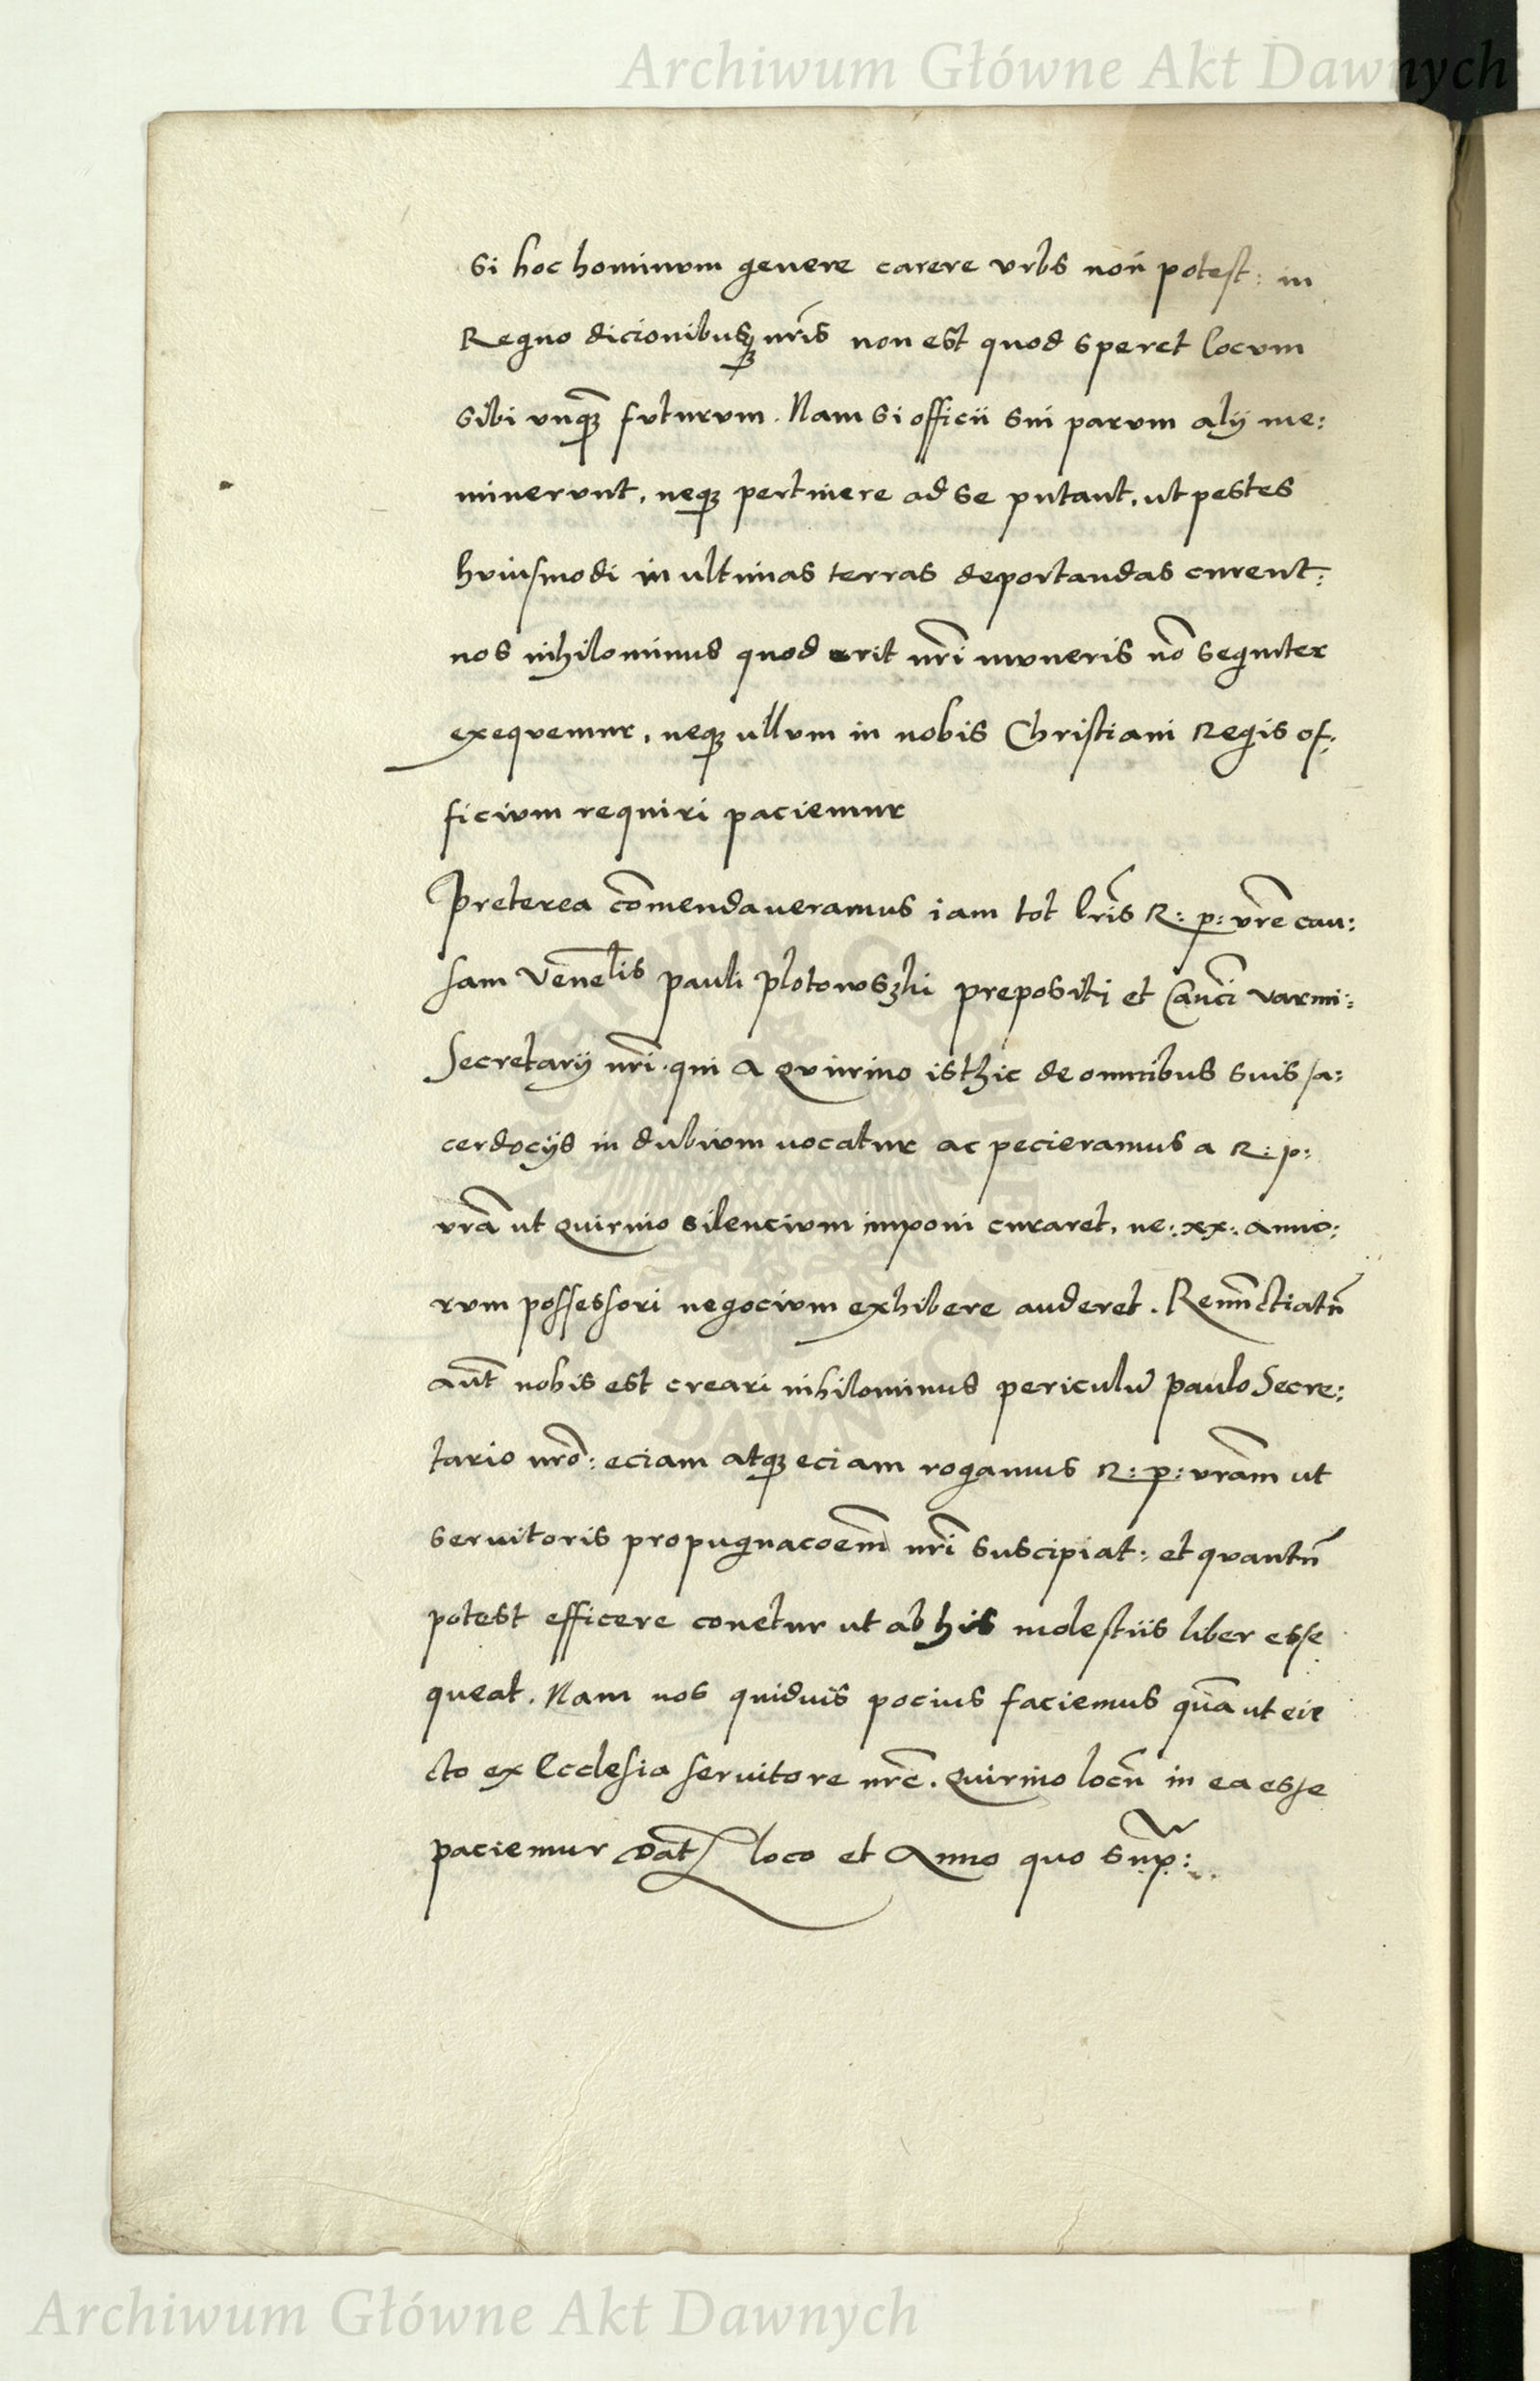 Archiwum Główne Akt Dawnych
si hoc hominum genere carere urbs non potest: in
Regno dicionibusq₃ nr̃is non est quod speret locum
sibi unq₃̃ futurum. Nam si officii sui parum alij me:
minerunt, neq₃ pertinere ad se putant, ut pestes
huiusmodi in ultimas terras deportandas curent:
nos nihilominus quod erit nr̃i muneris nõ segniter
exequemur, neq₃ ullum in nobis Christiani Regis of:
ficium requiri paciemur
Preterea com̃endaueramus iam tot lr̃is R: p: vr̃e cau:
sam Veneˡis pauli plotowszki prepositi et Canci varmi:
Secretarij nr̃i. qui a Quirino isthic de omnibus suis sa:
cerdocijs in dubium uocatur ac pecieramus a R: p:
vrã ut Quirino silencium imponi curaret, ne: xx: anno:
rum possessori negocium exhibere auderet. Renũctiatũ
aũt nobis est creari nihilominus periculũ paulo Secre:
tario nrõ: eciam atq₃ eciam rogamus R: p: vrãm ut
seruitoris propugnacoẽm nr̃i suscipiat: et quantũ
potest efficere conetur ut ab his molestiis liber esse
queat. Nam nos quiduis pocius faciemus quã ut eie
cto ex Ecclesia seruitore nr̃o. Quirino locũ in ea esse
paciemur Dat̃ loco et Anno quo sup:
Archiwum Główne Akt Dawnych